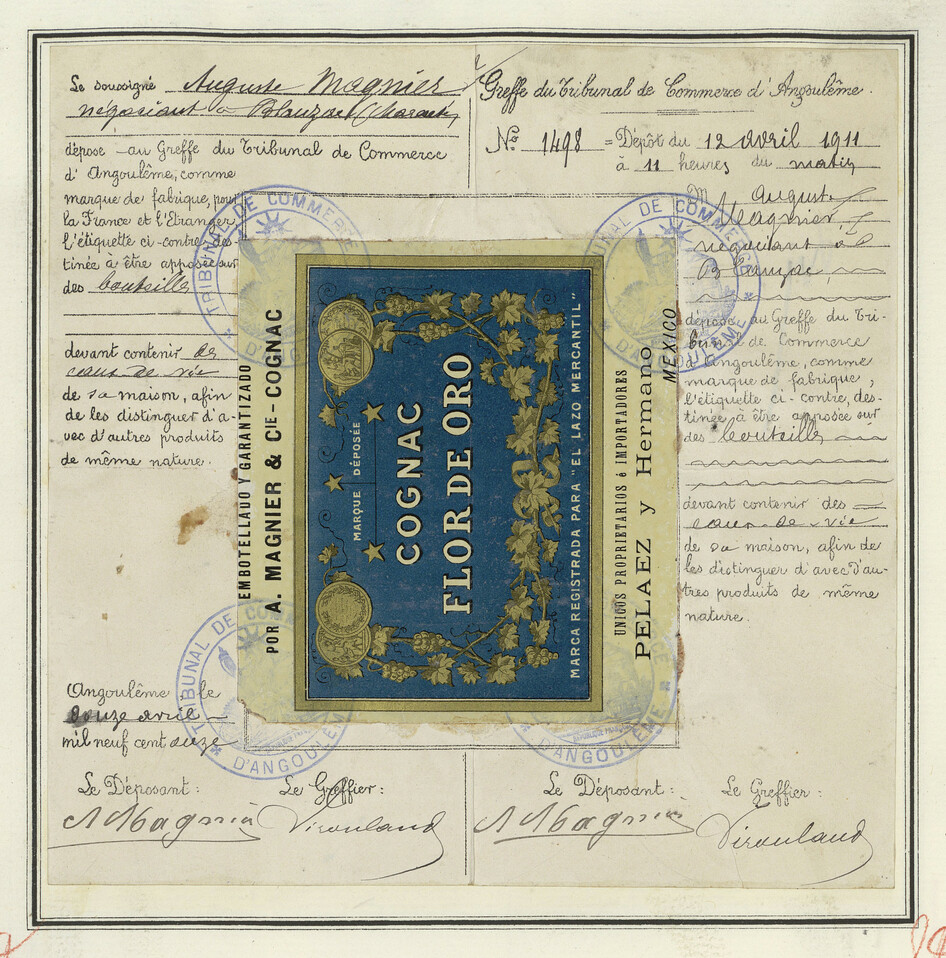 Le soussigné Auguste Magnier
négociant à Blanzac (Charente)
dépose au Greffe du Tribunal de Commerce
d'Angoulême, comme
marque de fabrique, pour
la France et l'Etranger,
l'étiquette ci-contre, des-
tinée à être apposée sur
des bouteilles
devant contenir des
eaux-de-vie
de sa maison, afin
de les distinguer d'a-
vec d'autres produits
de même nature.
Angoulême le
douze avril
mil neuf cent onze
Le Déposant: Le Greffier:
AMagnier Virouland
Greffe du Tribunal de Commerce d'Angoulême.
No 1498 = Dépôt du 12 avril 1911
à 11 heures du matin
M Auguste
Magnier
négociant à
Blanzac
dépose au Greffe du Tri-
bunal de Commerce
d'Angoulême, comme
marque de fabrique,
l'étiquette ci-contre, des-
tinée à être apposée sur
des bouteilles
devant contenir des
eaux-de-vie
de sa maison, afin de
les distinguer d'avec d'au-
tres produits de même
nature.
Le Déposant: Le Greffier:
AMagnier Virouland
EMBOTELLADO Y GARANTIZADO
POR A. MAGNIER & CIE - COGNAC
MARQUE DÉPOSÉE
COGNAC
FLOR DE ORO
MARCA REGISTRADA PARA "EL LAZO MERCANTIL"
UNICOS PROPRIETARIOS é IMPORTADORES
PELAEZ y Hermano
MEXICO
TRIBUNAL DE COMMERCE
D'ANGOULÊME
TRIBUNAL DE COMMERCE
D'ANGOULÊME
TRIBUNAL DE COMMERCE
D'ANGOULÊME
D'ANGOULÊME